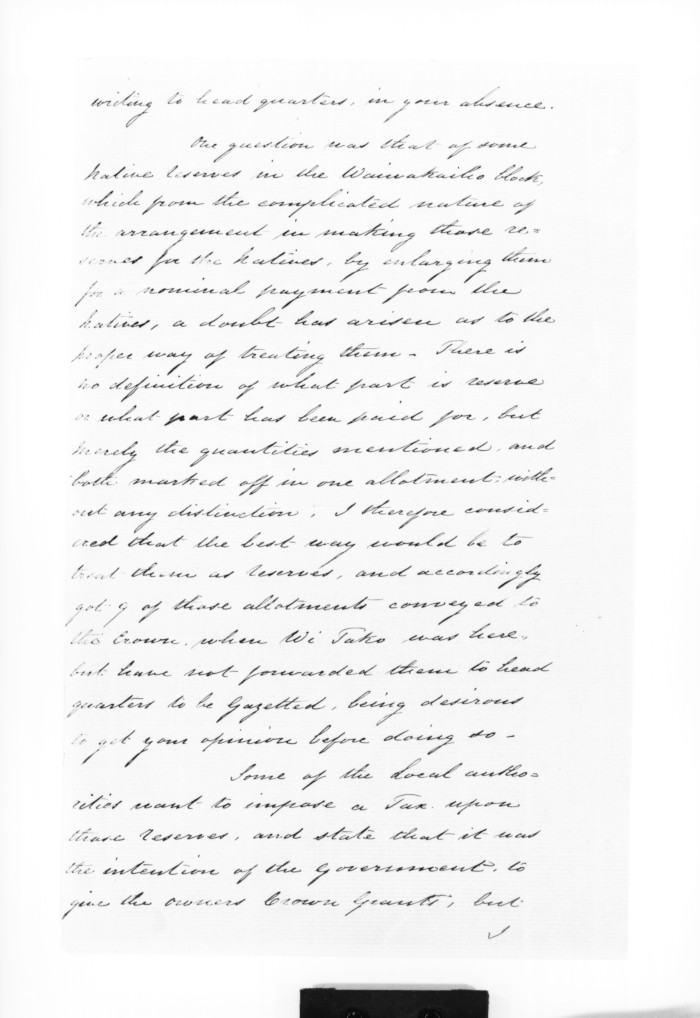 writing to head quarters, in your absence.
One question was that of some
Native Reserves in the Waiwakaiho block,
which from the complicated nature of
the arrangement in making those re=
serves for the Natives, by enlarging them
for a nominal payment from the
Natives, a doubt has arisen as to the
proper way of treating them - There is
no definition of what part is reserve
or what part has been paid for, but
merely the quantities mentioned, and
both marked off in one allotment, with=
out any distinction; I therefore consid=
ered that the best way would be to
treat them as reserves, and accordingly
got 9 of those allotments conveyed to
the Crown, when Wi Tako was here,
but have not forwarded them to head
quarters to be Gazetted, being desirous
to get your opinion before doing so -
Some of the Local autho=
rities want to impose a Tax upon
those reserves, and state that it was
the intention of the Government, to
give the owners Crown Grants, but
I